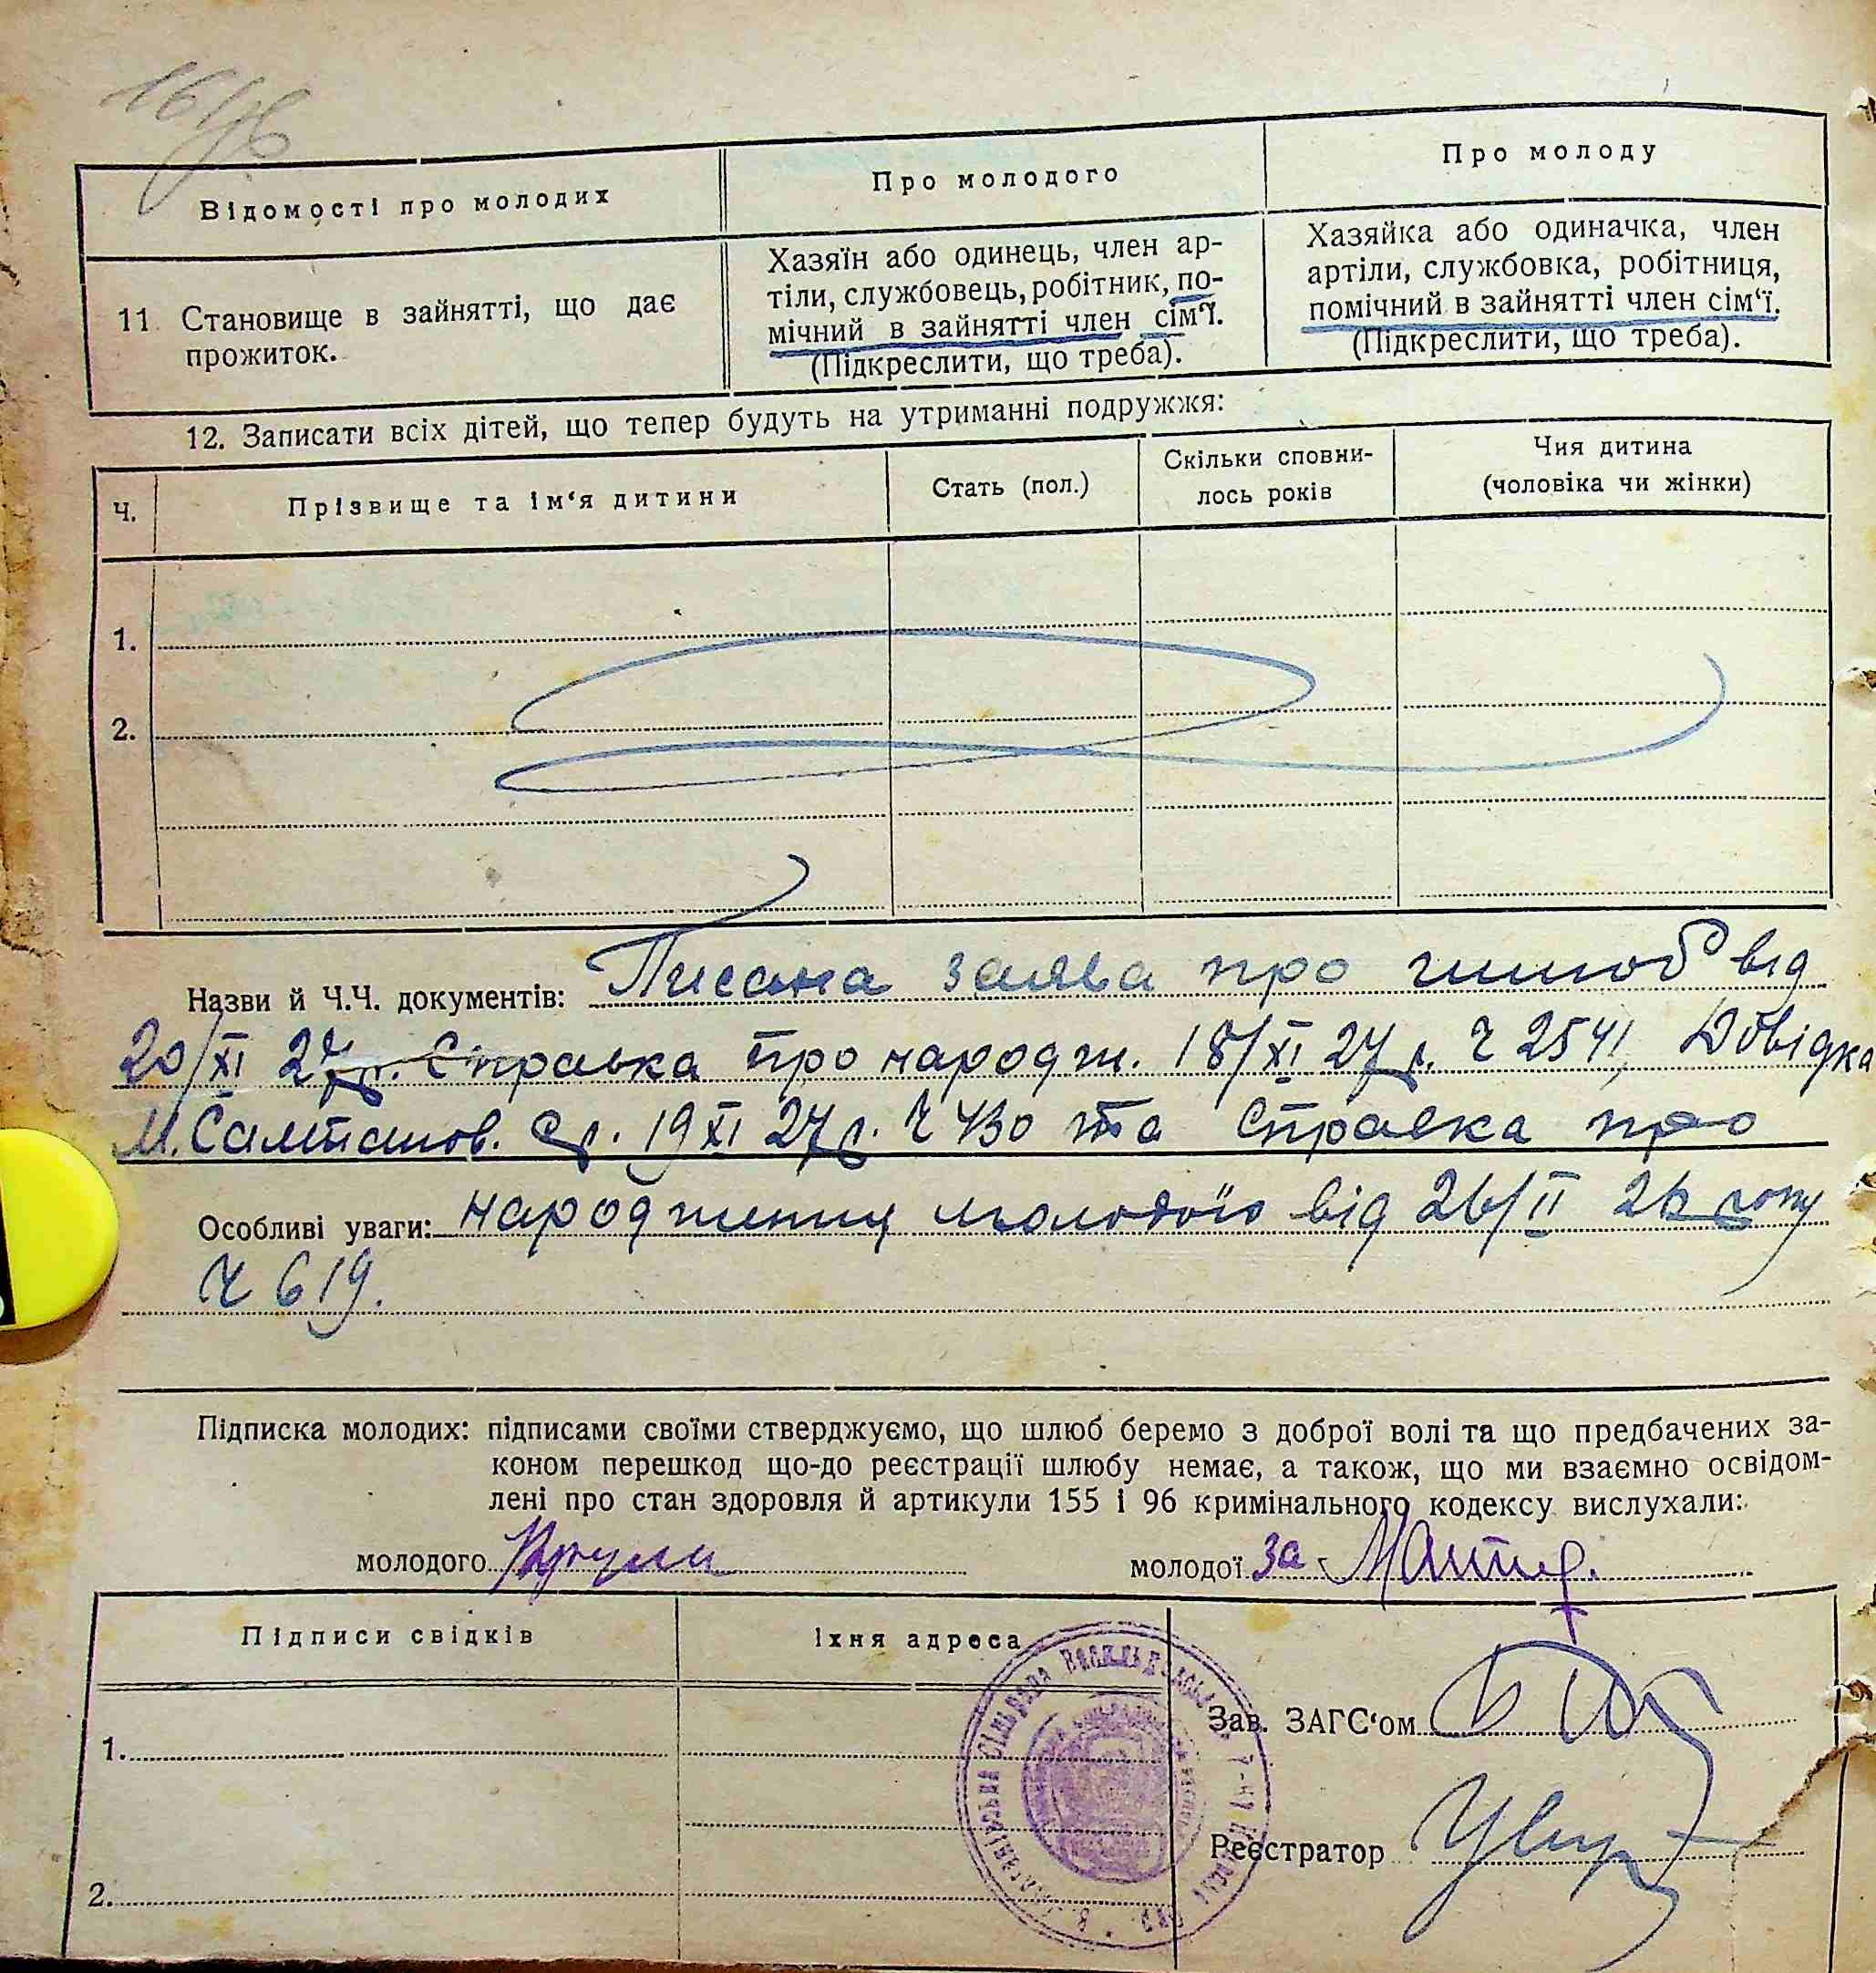 Відомості про молодих
Про молодого
Про молоду
11 Становище в зайнятті, що дає
прожиток.
Хазяїн або одинець, член ар-
тіли, службовець, робітник, по-
мічний в зайнятті член сім‘ї.
(Підкреслити, що треба).
Хазяйка або одиначка, член
артіли, службовка, робітниця,
помічний в зайнятті член сім‘ї.
(Підкреслити, що треба).
12. Записати всіх дітей, що тепер будуть на утриманні подружжя:
Ч.
Прізвище та ім‘я дитини
Стать (пол.)
Скільки сповни-
лось років
Чия дитина
(чоловіка чи жінки)
1.
2.
Назви й Ч.Ч. документів: Писана заява про шлюб від
20/XI 27р. Справка про народж. 18/XI 27 р. Ч 2541, Довідка
М. Салтанов. с.р. 19 XI 27р. Ч 430 та Справка про
Особливі уваги: народження молодого від 26/II 26 року
Ч 619.
Підписка молодих: підписами своїми стверджуємо, що шлюб беремо з доброї волі та що предбачених за-
коном перешкод що-до реєстрації шлюбу немає, а також, що ми взаємно освідом-
лені про стан здоровля й артикули 155 і 96 кримінального кодексу вислухали:
молодого
молодої за
Підписи свідків
Їхня адреса
1.
2.
Зав. ЗАГС‘ом
Реєстратор